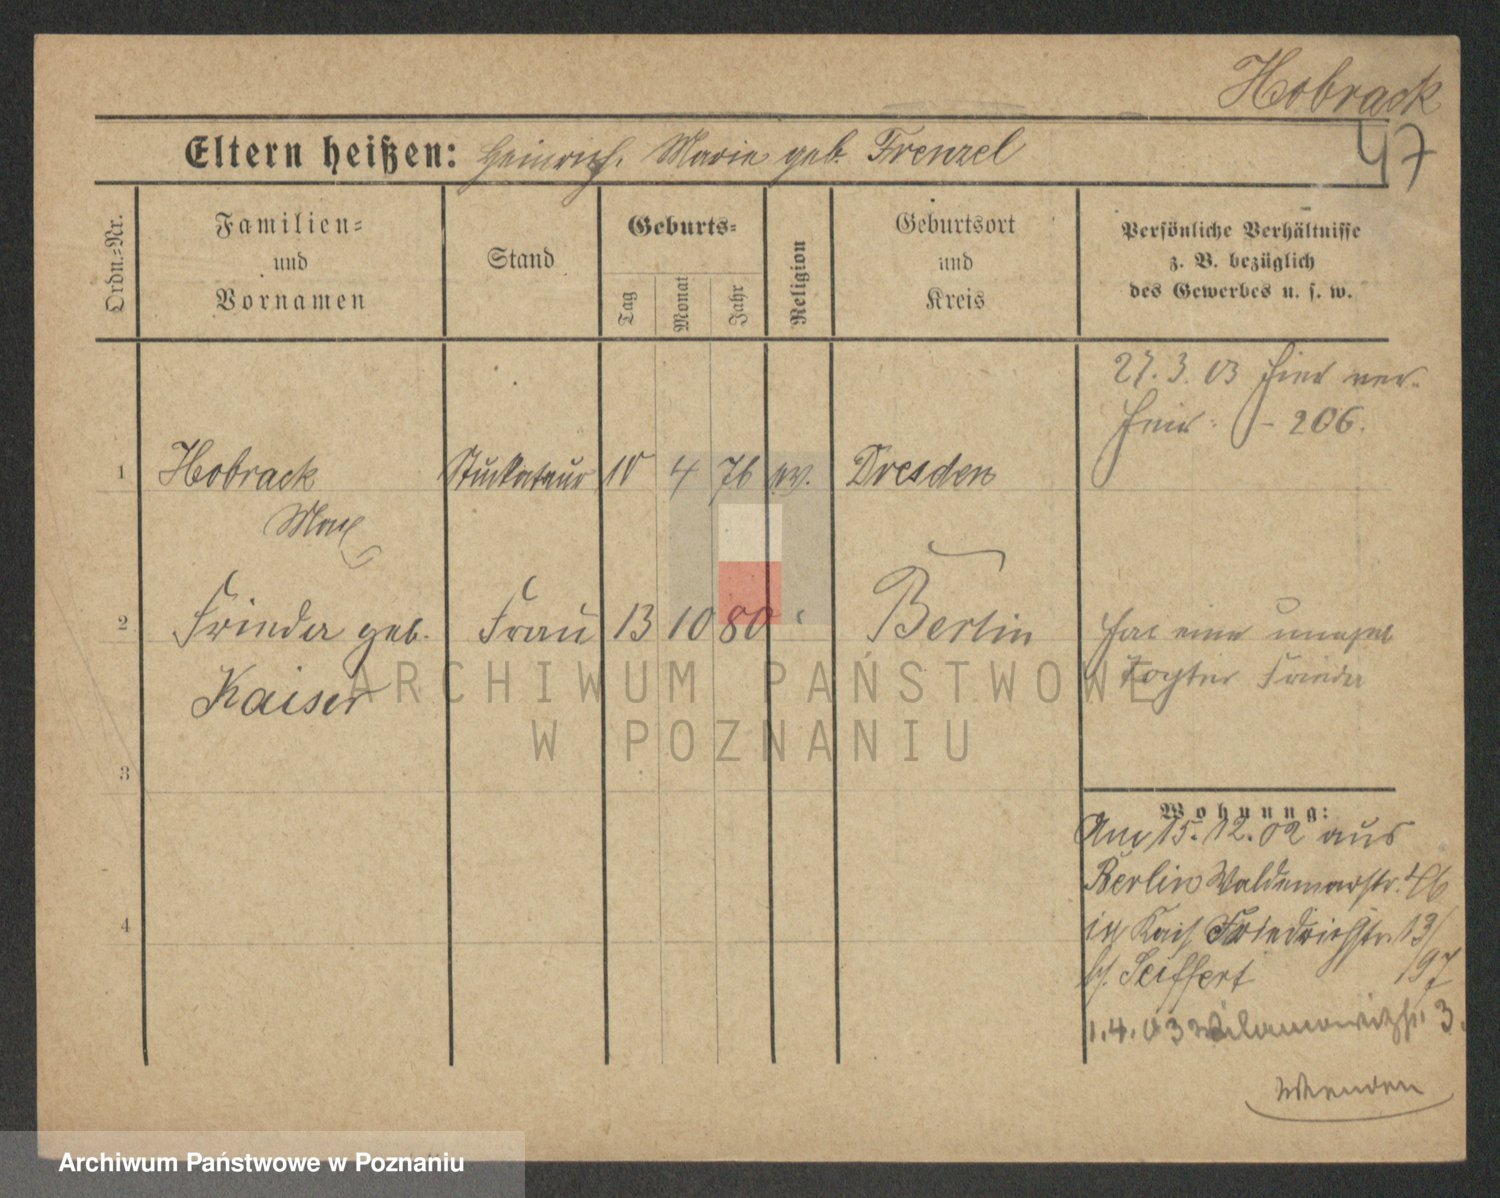 Hobrack
47
Eltern heißen: Heinrich, Marie geb. Frenzel
Ordn.-Nr.
Familien-
und
Vornamen
Stand
Geburts-
Tag
Monat
Jahr
Religion
Geburtsort
und
Kreis
Persönliche Verhältnisse
z. B. bezüglich
des Gewerbes u. s. w.
27. 3. 03 hier ver-
heir: 206.
1 Hobrack Stuckateur 10 4 76 ev. Dresden
Max
2 Frieda geb. Frau 13 10 80 Berlin
Kaiser
hat eine unehel
Tochter Frieda
3
Wohnung:
Am 15. 12. 02 aus
Berlin Waldemarstr. 46
Friedrichstr. 13/
b/. Seiffert 197
4
1. 4. 03 3.
Wenden
ARCHIWUM PAŃSTWOWE
W POZNANIU
Archiwum Państwowe w Poznaniu